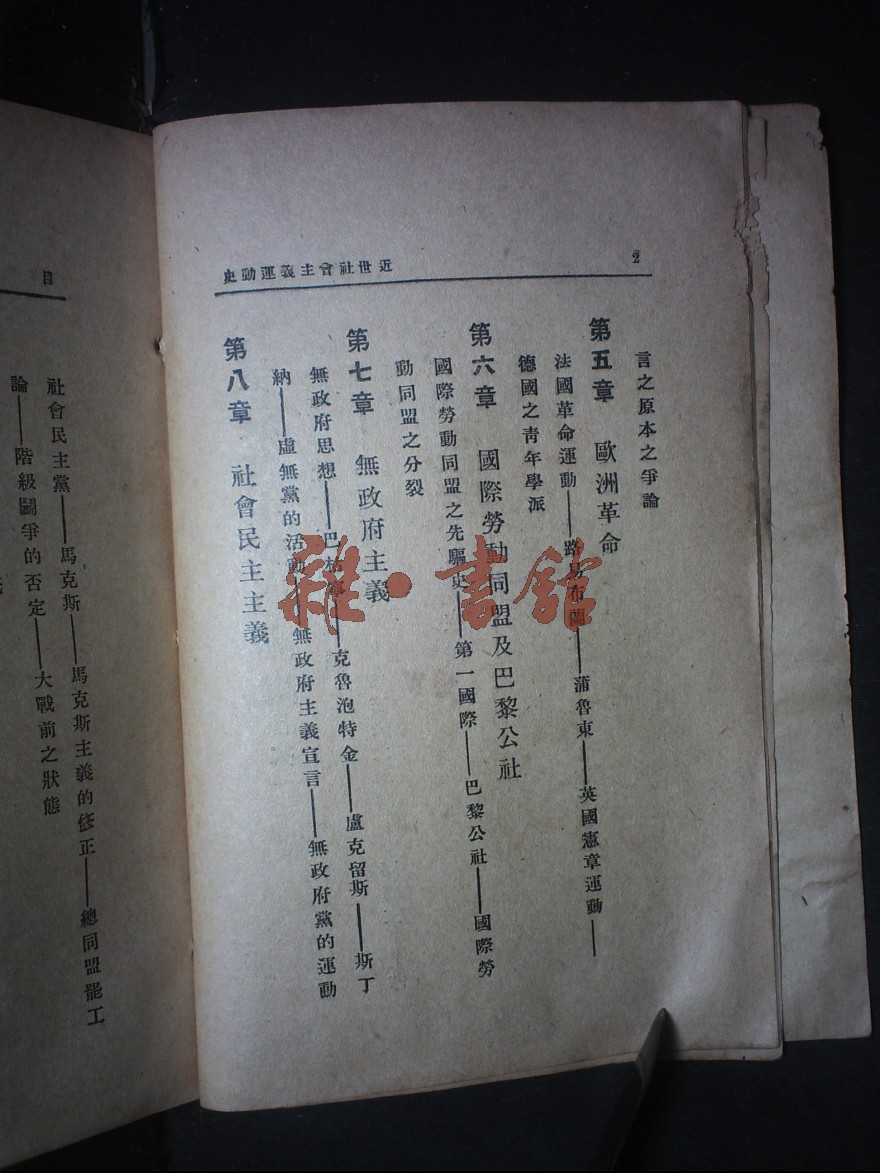 近世社會主義運動史
2
言之原本之爭論
第五章 歐洲革命
法國革命運動——路易布蘭——蒲魯東——英國憲章運動——
德國之靑年學派
第六章 國際勞動同盟及巴黎公社
國際勞動同盟之先驅史——第一國際——巴黎公社——國際勞
動同盟之分裂
第七章 無政府主義
無政府思想——巴枯寧——克魯泡特金——盧克留斯——斯丁
納——虛無黨的活動——無政府主義宣言——無政府黨的運動
第八章 社會民主主義
目
社會民主黨——馬克斯——馬克斯主義的修正——總同盟罷工
論——階級鬭爭的否定——大戰前之狀態
雜·書館